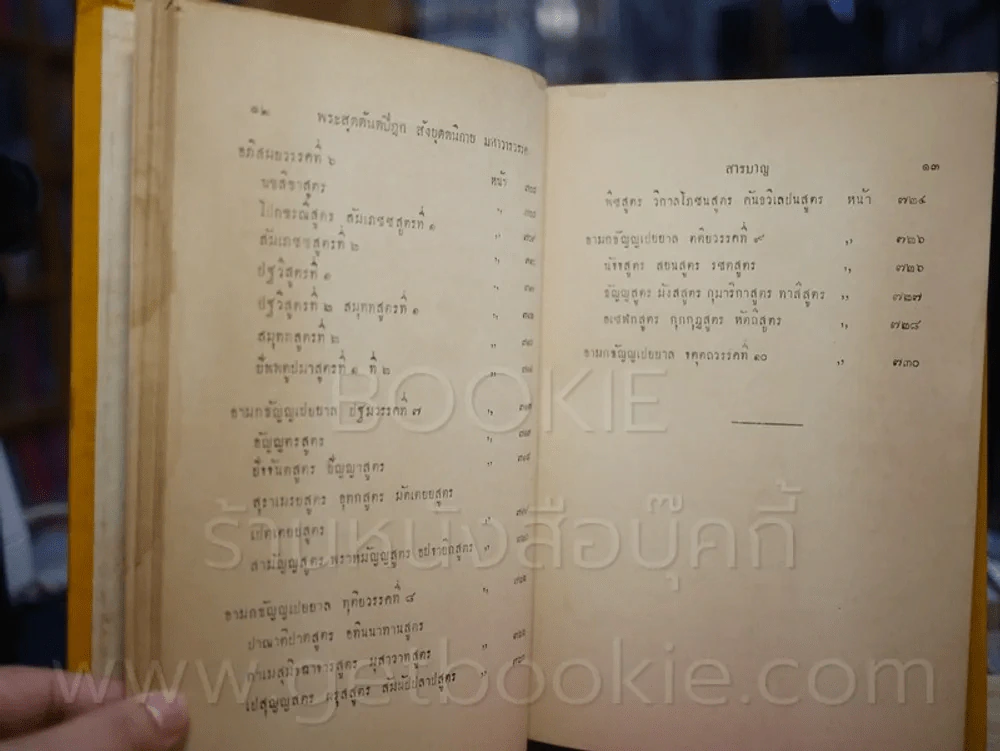 ๑๒ พระสุตตันตปิฎก สังยุตตนิกาย มหาวารวรรค
อภิสมยวรรคที่ ๖ หน้า
นขสิขาสูตร ,,
โปกขรณีสูตร สัมเภชชสูตรที่ ๑ ,,
สัมเภชชสูตรที่ ๒ ,,
ปฐวีสูตรที่ ๑ ,,
ปฐวีสูตรที่ ๒ สมุททสูตรที่ ๑ ,,
สมุททสูตรที่ ๒ ,,
ปัพพตูปมาสูตรที่ ๑ ที่ ๒ ,,
อามกธัญญเปยยาล ปฐมวรรคที่ ๗ ,,
อัญญตรสูตร ,,
ปัจจันตสูตร ปัญญาสูตร ,,
สุราเมรยสูตร อุทกสูตร มัตเตยยสูตร
เปตเตยยสูตร ,,
สามัญญสูตร พราหมัญญสูตร อปจายิกสูตร ,,
อามกธัญญเปยยาล ทุติยวรรคที่ ๘ ,,
ปาณาติปาตสูตร อทินนาทานสูตร
กาเมสุมิจฉาจารสูตร มุสาวาทสูตร ,,
เปสุญญสูตร ผรุสสูตร สัมผัปปลาปสูตร ,,
สารบาญ ๑๓
พีชสูตร วิกาลโภชนสูตร คันธวิเลปนสูตร หน้า ๗๒๔
อามกธัญญเปยยาล ตติยวรรคที่ ๙ ,, ๗๒๖
นัจจสูตร สยนสูตร รชตสูตร ,, ๗๒๖
ธัญญสูตร มังสสูตร กุมาริกาสูตร ทาสีสูตร ,, ๗๒๗
อเชฬกสูตร กุกกุฏสูตร หัตถีสูตร ,, ๗๒๘
อามกธัญญเปยยาล จตุตถวรรคที่ ๑๐ ,, ๗๓๐
BOOKIE
ร้านหนังสือบุ๊คกี้
www.jetbookie.com